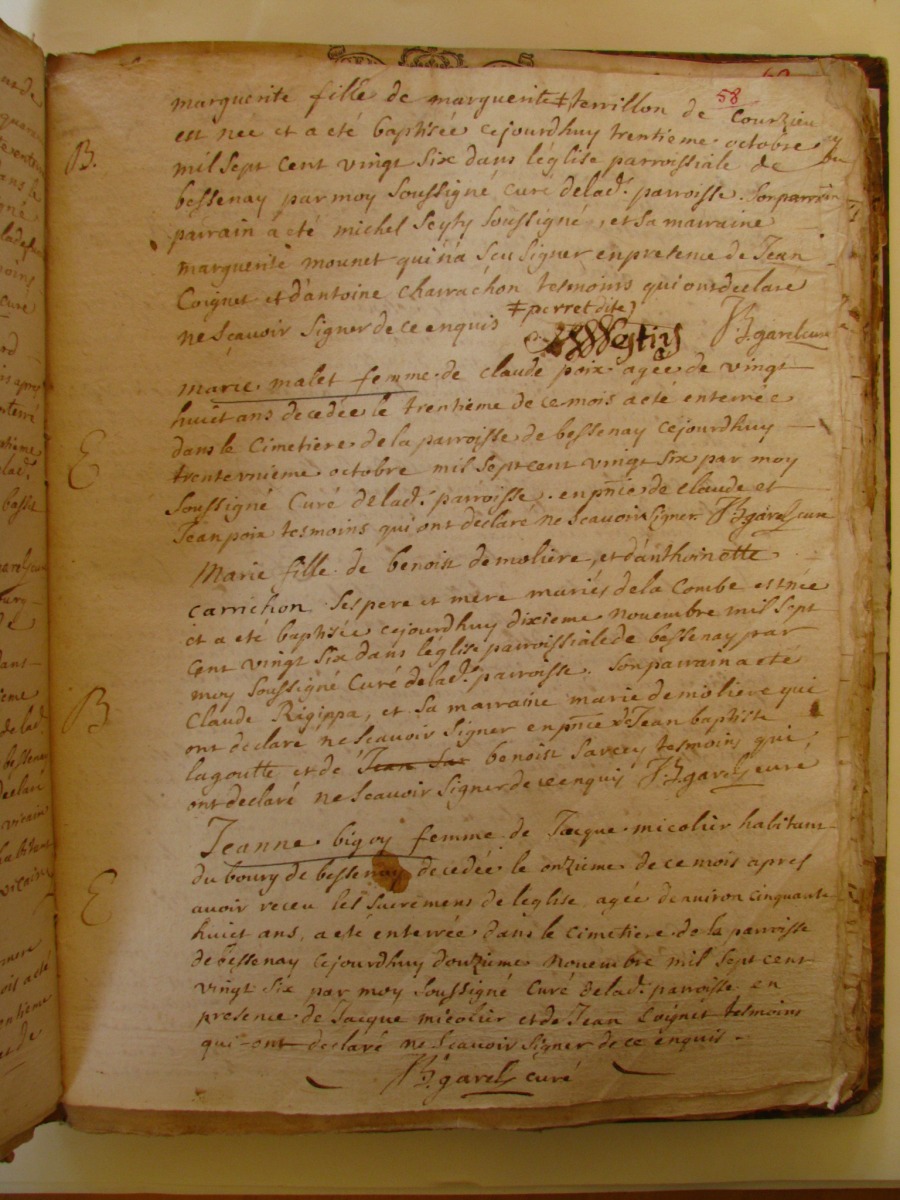 58
marguerite fille de marguerite ‡ terrillon de Courzieu
est née et a eté baptisée cejourdhuy trentieme octobre
B.
mil sept cent vingt six dans léglise parroissiale de
bessenay par moy soussigné curé delad. parroisse. Son parrain
parrain a eté michel Seyty soussigné, et sa marraine
marguerite mounet qui n'a sceu signer en presence de Jean
Coignet et d'antoine Charrachon tesmoins qui ont declaré
ne scavoir signer de ce enquis ‡ perret dite
JB. garel curé
marie malet femme de claude poix agée de vingt
huict ans decedée le trentieme de ce mois a eté enterrée
dans le Cimetiere de la parroisse de bessenay cejourdhuy
E
trenteunieme octobre mil sept cent vingt six par moy
soussigné Curé delad. parroisse. en pnce de claude et
Jean poix tesmoins qui ont declaré ne scavoir signer. JB garel curé
Marie fille de benoist demoliere, et d'anthoinette
carrichon ses pere et mere mariés de la Combe est née
et a eté baptisée cejourdhuy dixieme novembre mil sept
cent vingt six dans léglise parroissiale de bessenay par
B
moy soussigné Curé delad. parroisse. son parrain a eté
Claude Rigippa, et sa marraine marie demoliere qui
ont declaré ne scavoir signer en pnce de Jean baptiste
lagoutte et de benoist Sarcey tesmoins qui
ont declaré ne scavoir signer de ce enquis JB garel curé
Jeanne bigoy femme de Jacque micolier habitant
du bourg de bessenay decedée le onzieme de ce mois apres
E
avoir receu les sacremens de leglise agée denviron cinquante
huict ans, a eté enterrée dans le cimetiere de la parroisse
de bessenay cejourdhuy douzieme novembre mil sept cent
vingt six par moy soussigné Curé delad. parroisse en
presence de Jacque micolier et de Jean Coignet tesmoins
qui ont declaré ne scavoir signer de ce enquis.
JB. garel curé